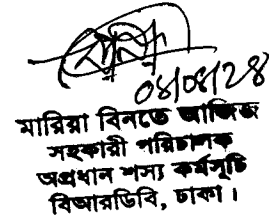 ০৪/০৪/২৪
মারিয়া বিনতে আজিজ
সহকারী পরিচালক
অপ্রধান শস্য কর্মসূচি
বিআরডিবি, ঢাকা।